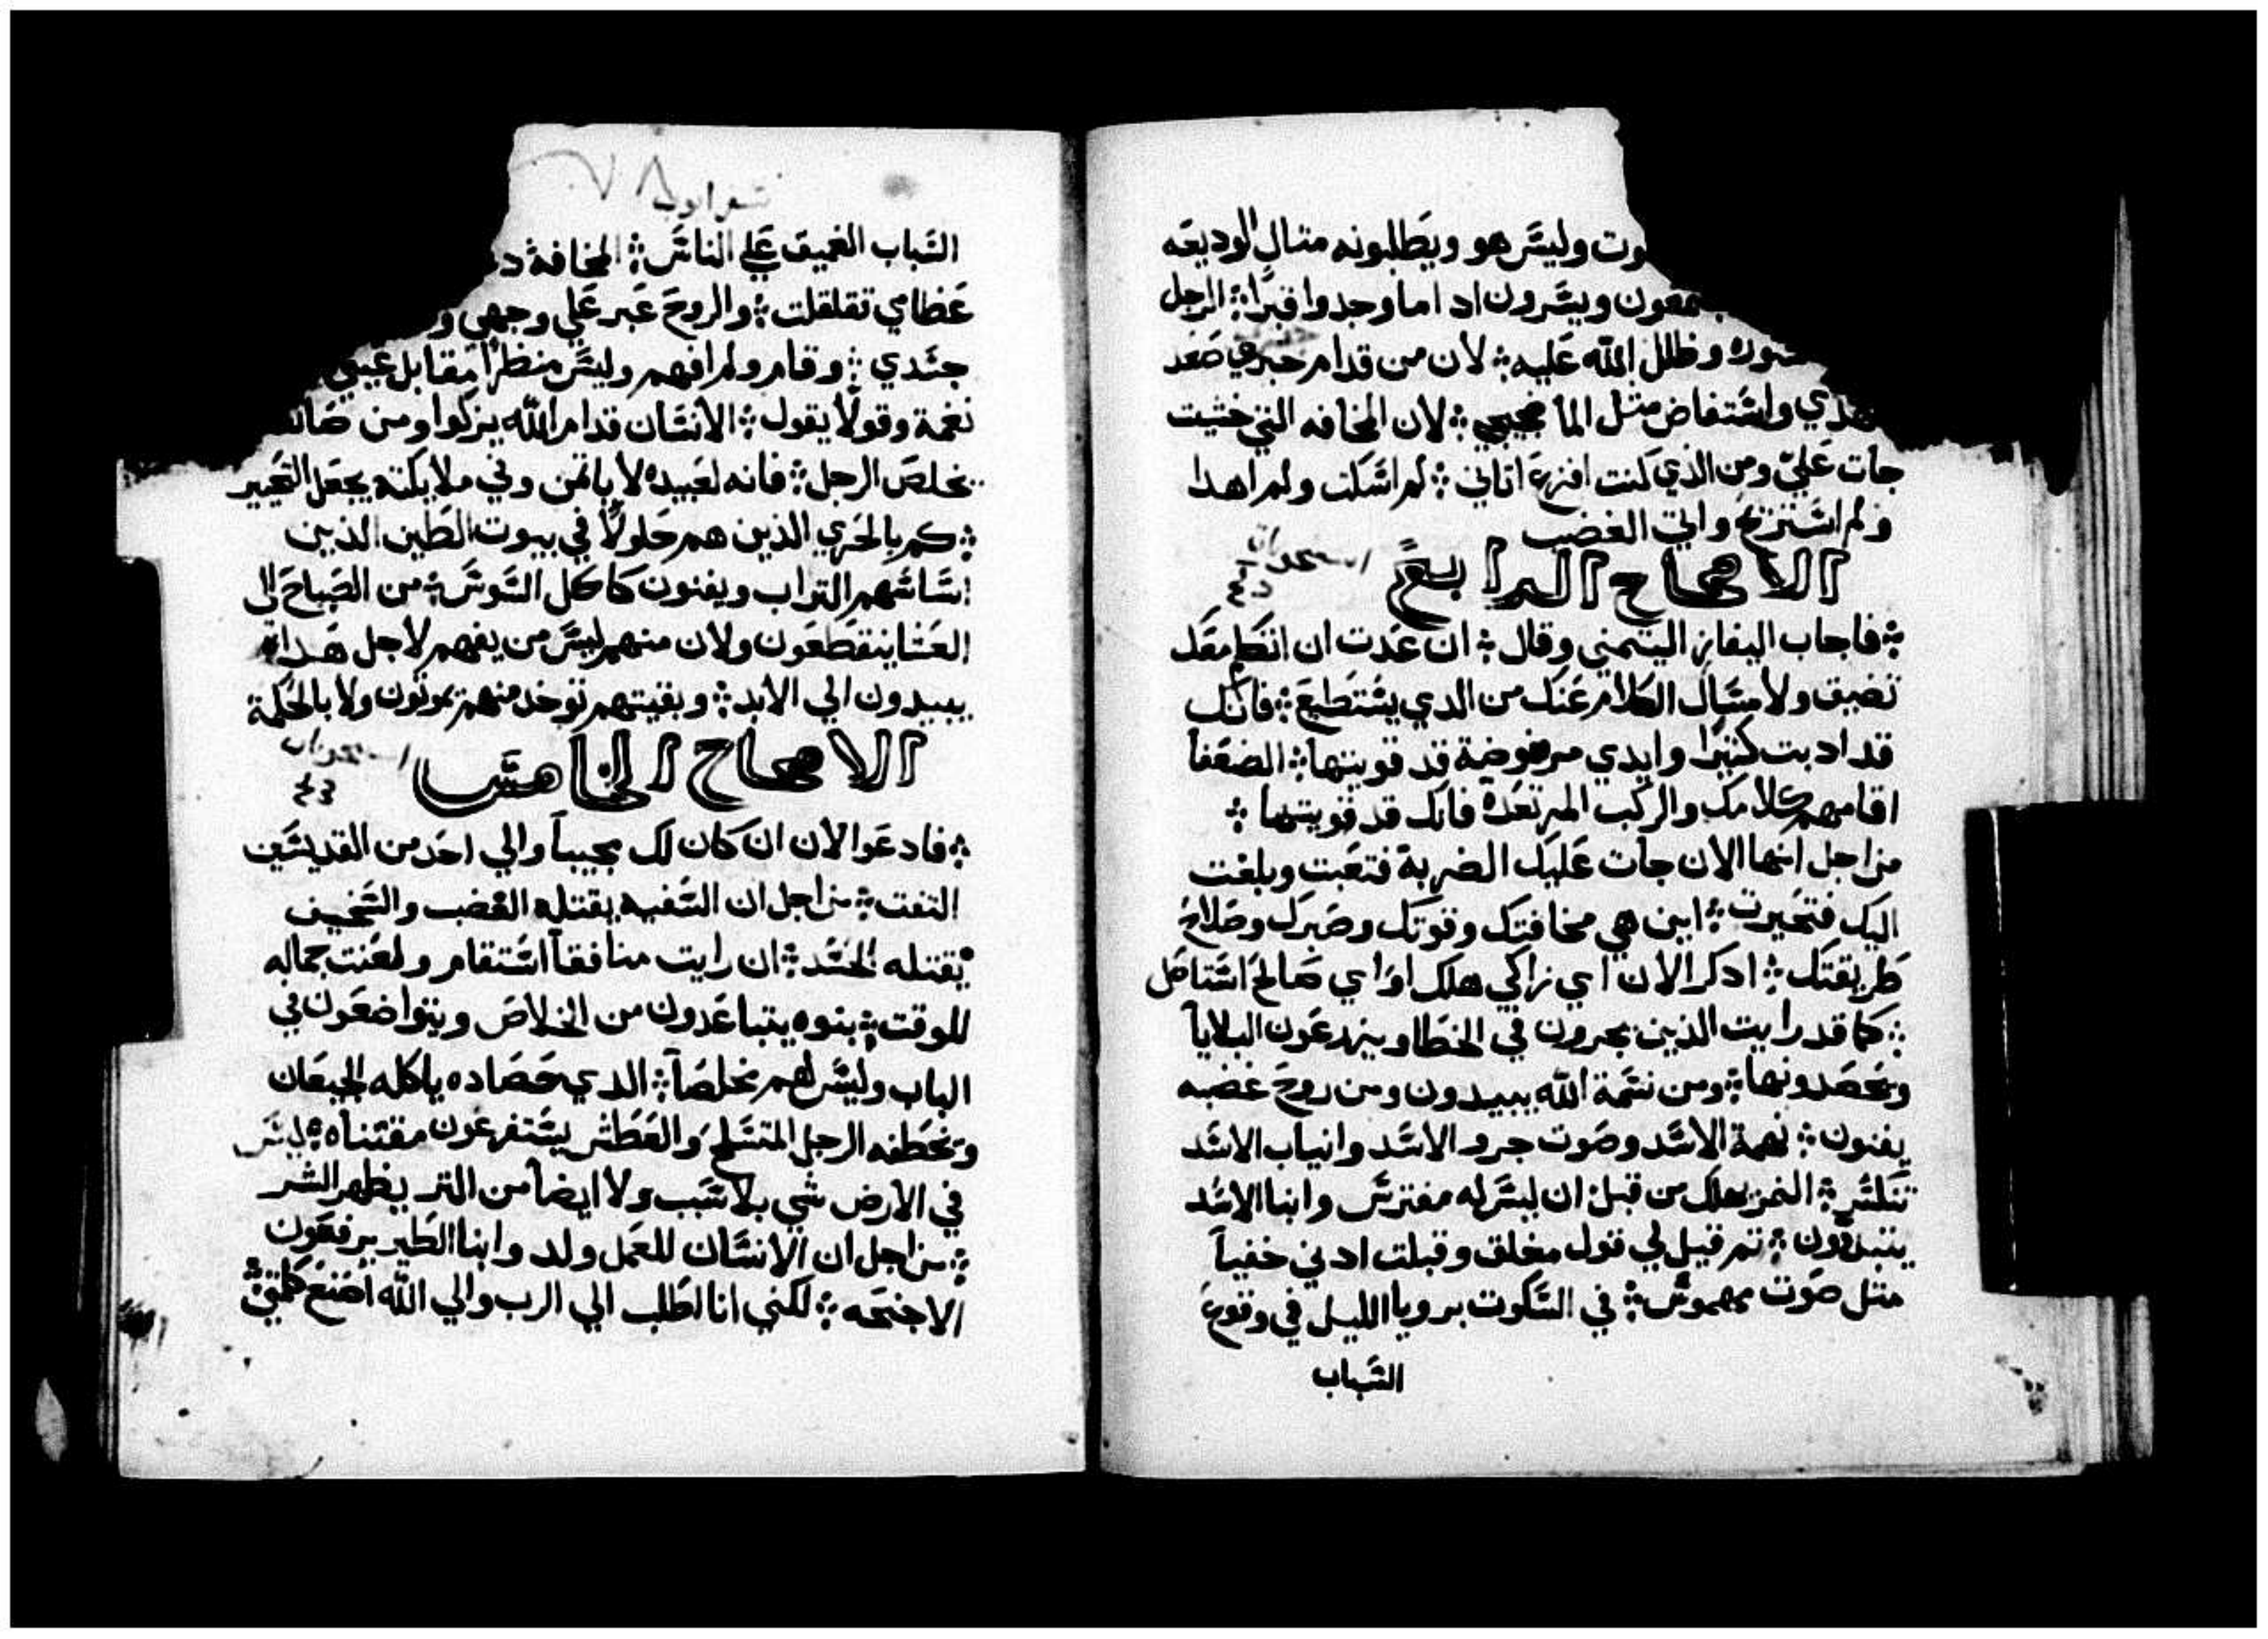 وليس هو ويطلبونه متال الوديعه
ويسرون ادا ما وجدوا قبرًا ⁘ الرجل
وظلل الله عليه ⁘ لان من قدام خبزي صعد
واستفاض متل الما ضجيجي ⁘ لان المخافه التي خشيت
جات عليّ ومن الذي كنت افزع اتاني ⁘ لم اسكت ولم اهدا
ولم استريح واتي الغضب
الاصحاح الرابع
⁘ فاجاب اليفاز اليتمني وقال ⁘ ان عدت ان اتكلم معك
تضيق ولامساك الكلام عنك من الدي يستطيع ⁘ فانك
قد ادبت كتيرًا وايدي مرفوضة قد قويتها ⁘ الضعفا
اقامهم كلامك والركب المرتعدة فانك قد قويتها ⁘
من اجل انها الان جات عليك الضربة فتعبت وبلغت
اليك فتحيرت ⁘ اين هي مخافتك وقوتك وصبرك وصلاح
طريقتك ⁘ ادكر الان اي زاكي هلك او اي صالح استاصل
⁘ كما قد رايت الذين يحرون في الخطا ويزرعون البلايا
ويحصدونها ⁘ ومن نسمة الله يبيدون ومن روح غضبه
يفنون ⁘ نهمة الاسد وصوت جرد الاسد وانياب الاسد
تنكسر ⁘ النمر يهلك من قبل ان ليس له مفترس وابنا الاسد
يتبددون ⁘ تم قيل لي قول مغلق وقبلت ادني خفياً
متل صوت مهموس ⁘ في السكوت برويا الليل في وقوع
السبات
سفر ايوب ٧٨
السبات الغميق علي الناس ⁘ المخافة
عظامي تقلقلت ⁘ والروح عبر علي وجهي
جسدي ⁘ وقام ولم افهم وليس منظرًا مقابل عيني
نغمة وقولًا يقول ⁘ الانسان قدام الله يزكوا ومن
يخلص الرجل ⁘ فانه لعبيده لا ياتمن وفي ملايكته يجعل التحير
⁘ كم بالحري الذين هم حلولًا في بيوت الطين الذين
اساسهم التراب ويفنون كاكل السوس ⁘ من الصباح الي
العشا ينقطعون ولان منهم ليس من يفهم لاجل هدا
يبيدون الي الابد ⁘ وبقيتهم توخد منهم يموتون ولا بالحكمة
الاصحاح الخامس
⁘ فادعوا الان ان كان لك مجيباً والي احد من القديسين
التفت ⁘ من اجل ان السفيه يقتله الغضب والسخيف
يقتله الحسد ⁘ ان رايت منافقاً استقام ولعنت جماله
للوقت ⁘ بنوه يتباعدون من الخلاص ويتواضعون في
الباب وليس لهم مخلصاً ⁘ الدي حصاده ياكله الجيعان
ويخطفه الرجل المتسلح والعطش يستفرغون مقتناه ⁘ ليس
في الارض شي بلا سبب ولا ايضاً من التر يظهر الشر
⁘ من اجل ان الانسان للعمل ولد وابنا الطير يرفعون
الاجنحه ⁘ لكني انا اطلب الي الرب والي الله اصنع كلمتي ⁘